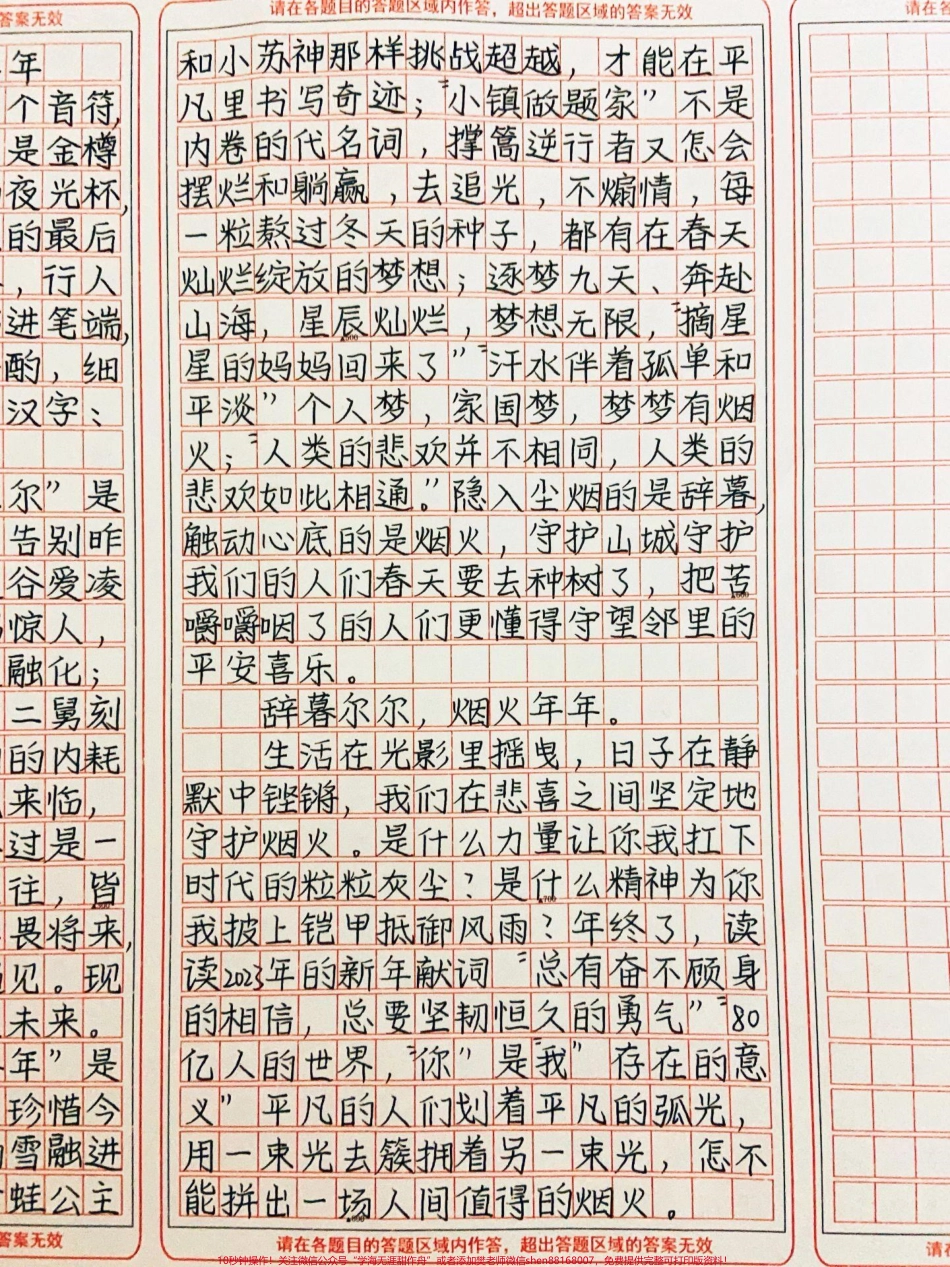 答案无效
年
个音符,
是金樽
夜光杯,
的最后
,行人
进笔端,
酌,细
汉字:
尔”是
告别昨
谷爱凌
惊人,
融化;
二舅刻
的内耗
来临,
过是一
往,皆
畏将来,
见。现
未来。
年”是
珍惜今
雪融进
蛙公主
答案无效
请在各题目的答题区域内作答,超出答题区域的答案无效
和小苏神那样挑战超越,才能在平
凡里书写奇迹;“小镇做题家”不是
内卷的代名词,撑篙逆行者又怎会
摆烂和躺赢,去追光,不煽情,每
一粒熬过冬天的种子,都有在春天
灿烂绽放的梦想;逐梦九天、奔赴
山海,星辰灿烂,梦想无限,“摘星
星的妈妈回来了”“汗水伴着孤单和
平淡”个人梦,家国梦,梦梦有烟
火;“人类的悲欢并不相同,人类的
悲欢如此相通。”隐入尘烟的是辞暮,
触动心底的是烟火,守护山城守护
我们的人们春天要去种树了,把苦
嚼嚼咽了的人们更懂得守望邻里的
平安喜乐。
辞暮尔尔,烟火年年。
生活在光影里摇曳,日子在静
默中铿锵,我们在悲喜之间坚定地
守护烟火。是什么力量让你我扛下
时代的粒粒灰尘?是什么精神为你
我披上铠甲抵御风雨?年终了,读
读2023年的新年献词“总有奋不顾身
的相信,总要坚韧恒久的勇气”“80
亿人的世界,“你”是“我”存在的意
义”平凡的人们划着平凡的弧光,
用一束光去簇拥着另一束光,怎不
能拼出一场人间值得的烟火。
请在各题目的答题区域内作答,超出答题区域的答案无效
10秒钟操作!关注微信公众号“学海无涯甜作舟”或者添加樊老师微信shen88168007,免费提供完整可打印版资料!
请在各
请在